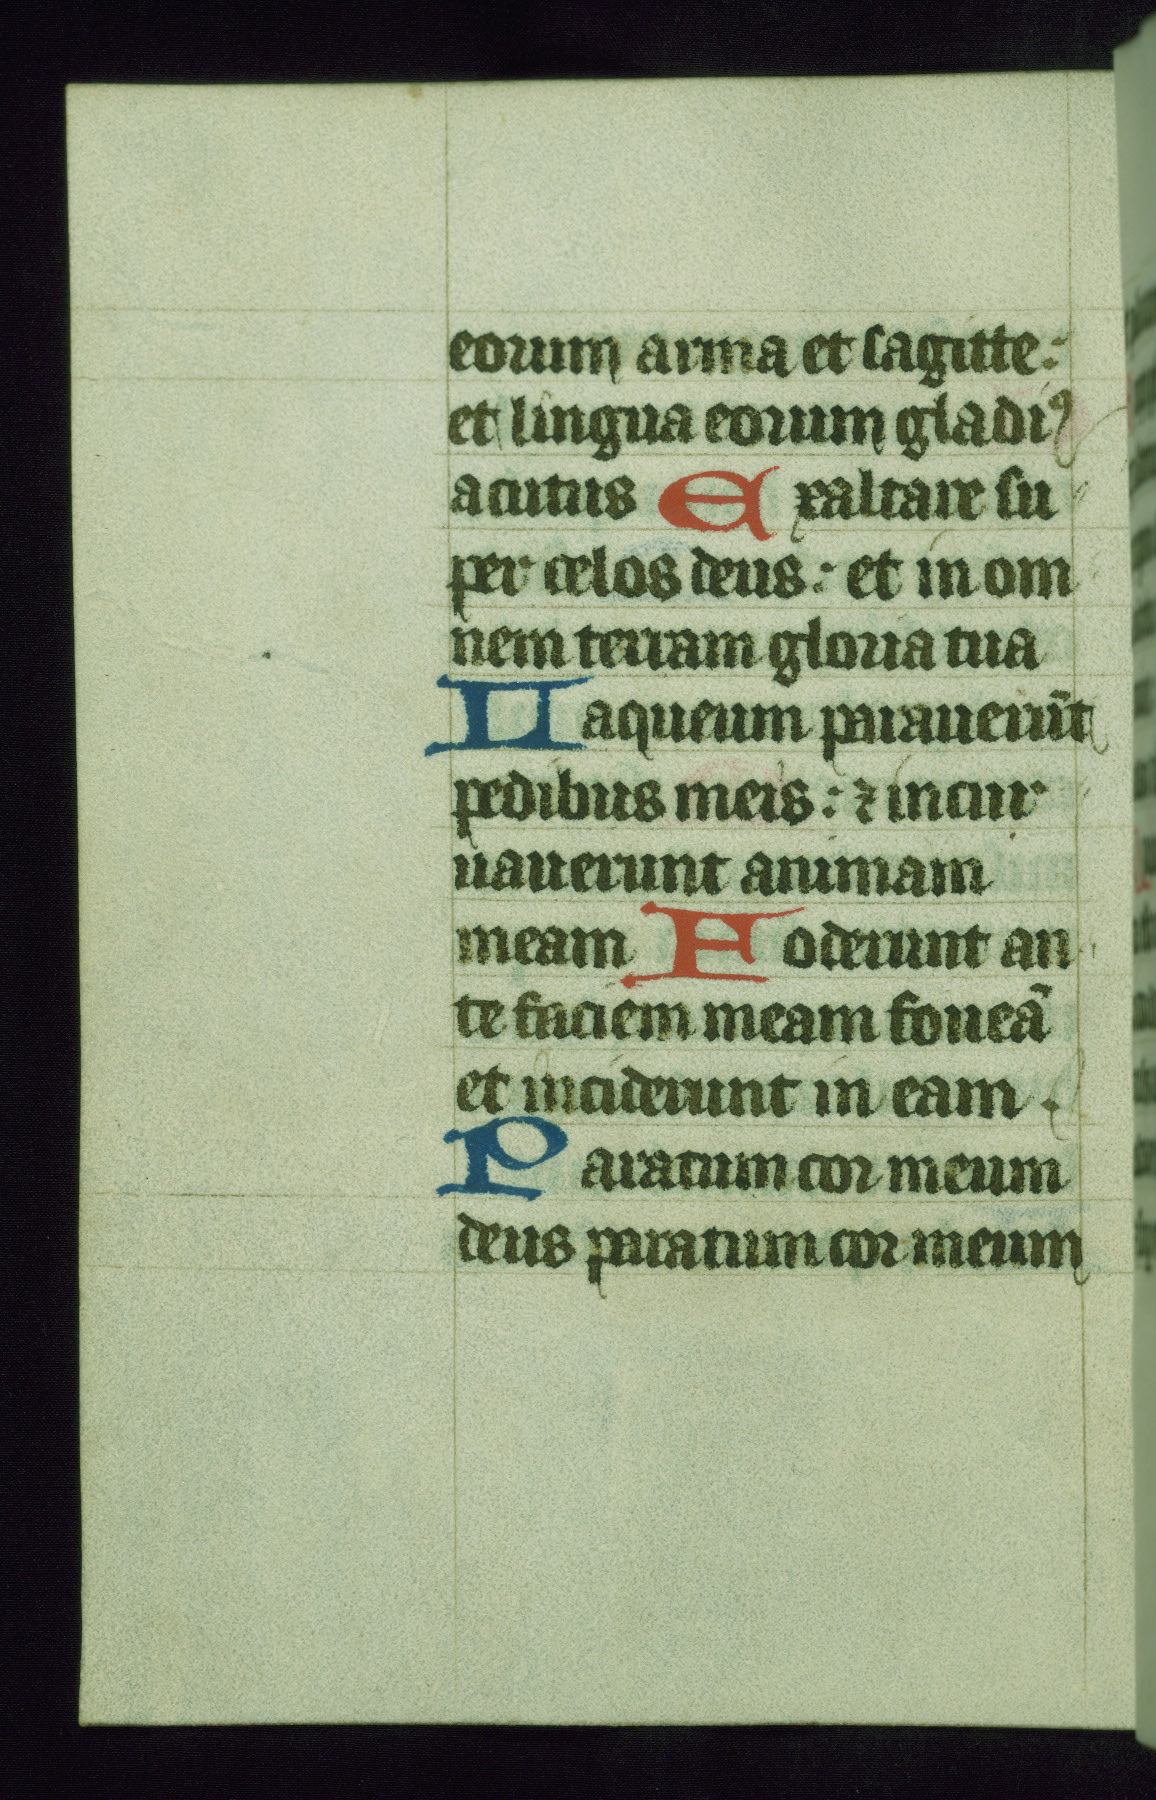 eorum arma et sagitte:
et lingua eorum gladiꝰ
acutus Exaltare su
per celos deus: et in om
nem terram gloria tua
Laqueum parauerūt
pedibus meis: ⁊ incur
uauerunt animam
meam Foderunt an
te faciem meam foueā
et inciderunt in eam.
Paratum cor meum
deus paratum cor meum